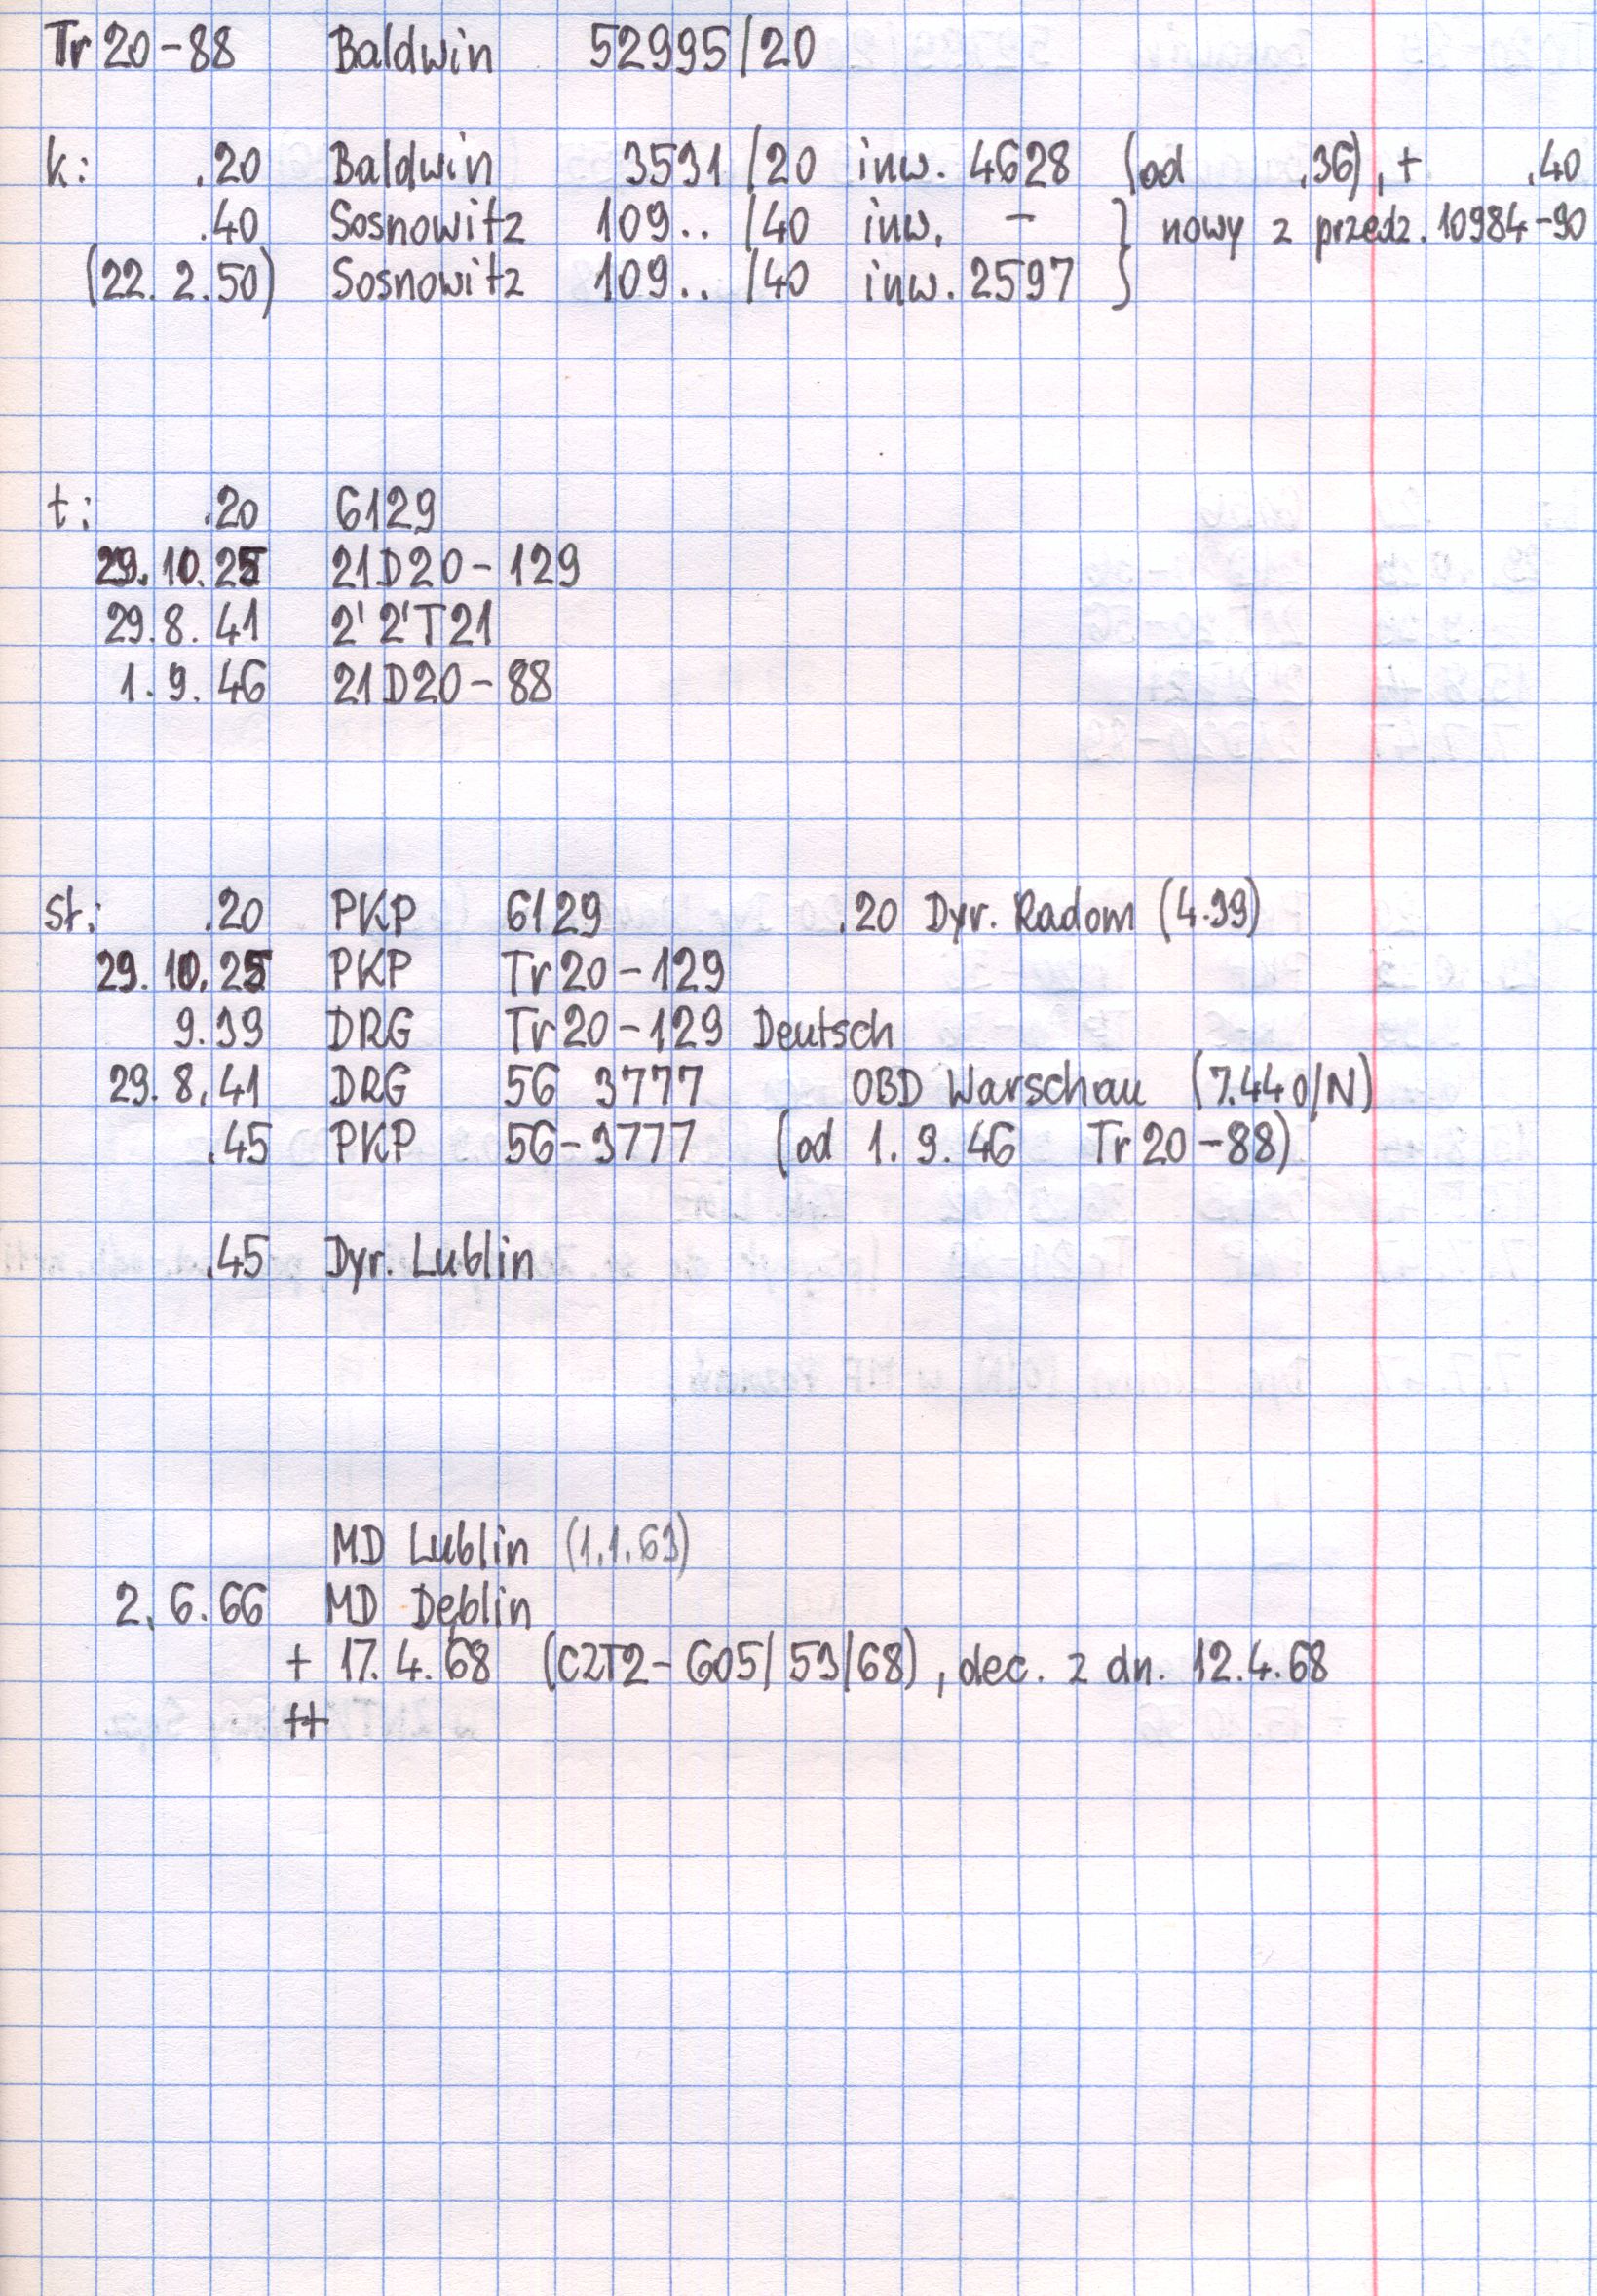 Tr 20-88 Baldwin 52995/20
k: .20 Baldwin 3531/20 inw. 4628 (od .36), + .40
.40 Sosnowitz 109.. /40 inw. - } nowy z przedz. 10984-90
(22.2.50) Sosnowitz 109.. /40 inw. 2597
t: .20 6129
29.10.25 21D20-129
29.8.41 2'2'T21
1.9.46 21D20-88
st: .20 PKP 6129 .20 Dyr. Radom (4.39)
29.10.25 PKP Tr 20-129
9.39 DRG Tr 20-129 Deutsch
29.8.41 DRG 56 3777 OBD Warschau (7.44 O/N)
.45 PKP 56-3777 (od 1.9.46 Tr 20-88)
.45 Dyr. Lublin
MD Lublin (1.1.63)
2.6.66 MD Dęblin
+ 17.4.68 (CZT2-605/53/68), dec. z dn. 12.4.68
++